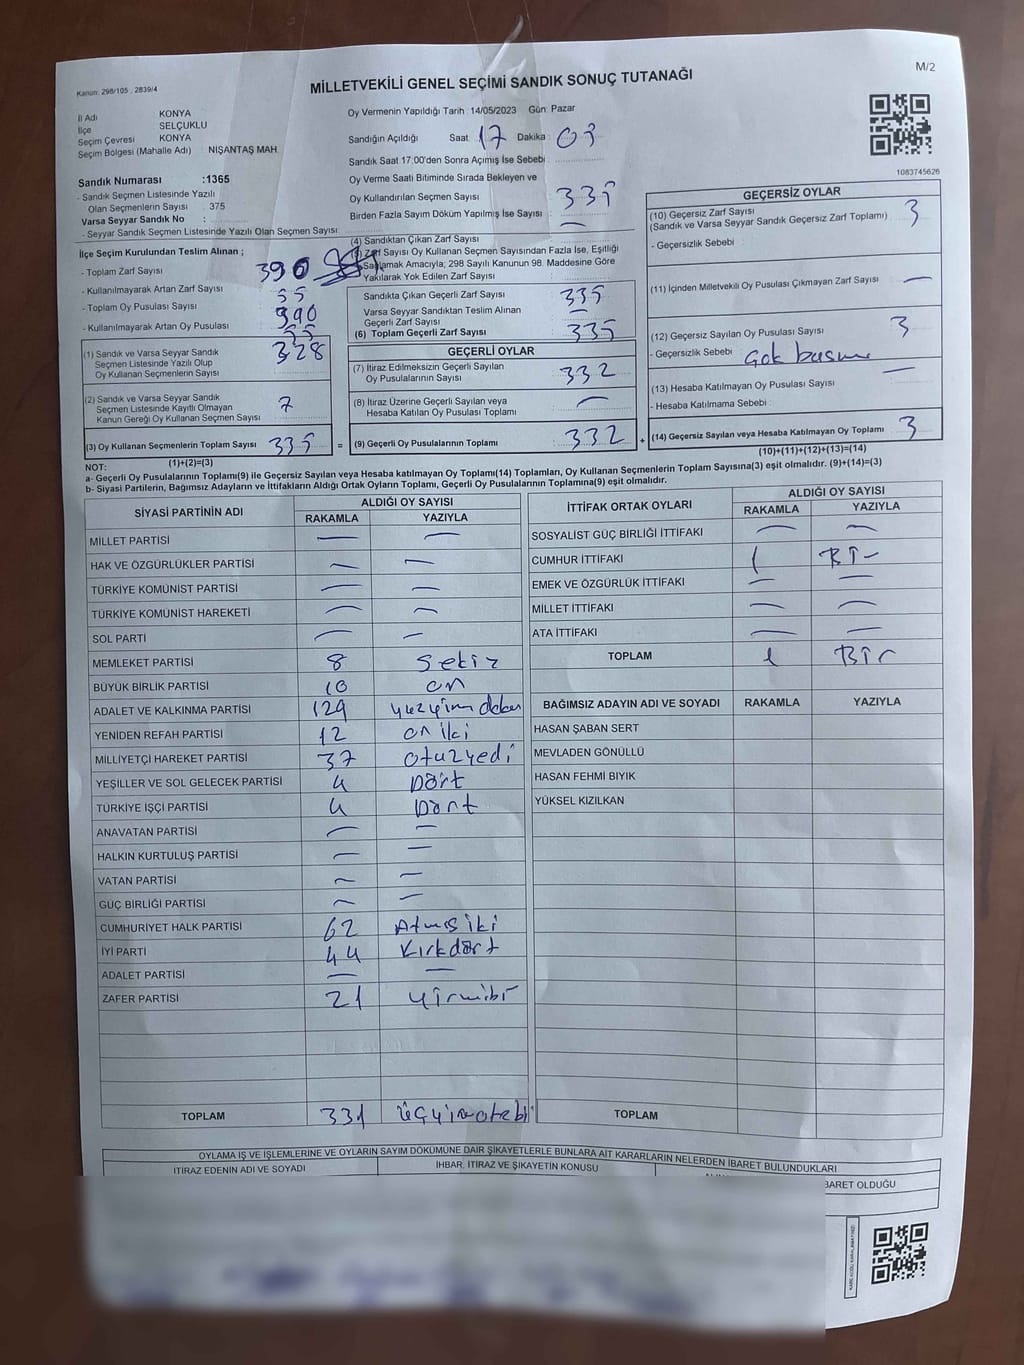 M/2
Kanun: 298/105 , 2839/4
MİLLETVEKİLİ GENEL SEÇİMİ SANDIK SONUÇ TUTANAĞI
İl Adı KONYA
İlçe SELÇUKLU
Seçim Çevresi KONYA
Seçim Bölgesi (Mahalle Adı) NİŞANTAŞ MAH.
Sandık Numarası :1365
- Sandık Seçmen Listesinde Yazılı
Olan Seçmenlerin Sayısı 375
Varsa Seyyar Sandık No :
- Seyyar Sandık Seçmen Listesinde Yazılı Olan Seçmen Sayısı:
Oy Vermenin Yapıldığı Tarih :14/05/2023 Gün: Pazar
Sandığın Açıldığı Saat 17 Dakika : 03
Sandık Saat 17:00'den Sonra Açımış İse Sebebi :
Oy Verme Saati Bitiminde Sırada Bekleyen ve
Oy Kullandırılan Seçmen Sayısı 335
Birden Fazla Sayım Döküm Yapılmış İse Sayısı : —
1083745626
İlçe Seçim Kurulundan Teslim Alınan ;
- Toplam Zarf Sayısı 390
- Kullanılmayarak Artan Zarf Sayısı 55
- Toplam Oy Pusulası Sayısı 390
- Kullanılmayarak Artan Oy Pusulası 55
(1) Sandık ve Varsa Seyyar Sandık 328
Seçmen Listesinde Yazılı Olup
Oy Kullanan Seçmenlerin Sayısı
(2) Sandık ve Varsa Seyyar Sandık
Seçmen Listesinde Kayıtlı Olmayan 7
Kanun Gereği Oy Kullanan Seçmen Sayısı
(3) Oy Kullanan Seçmenlerin Toplam Sayısı 335
(1)+(2)=(3)
(4) Sandıktan Çıkan Zarf Sayısı
Zarf Sayısı Oy Kullanan Seçmen Sayısından Fazla İse, Eşitliği
Sağlamak Amacıyla; 298 Sayılı Kanunun 98. Maddesine Göre
Yakılarak Yok Edilen Zarf Sayısı
Sandıkta Çıkan Geçerli Zarf Sayısı 335
Varsa Seyyar Sandıktan Teslim Alınan
Geçerli Zarf Sayısı —
(6) Toplam Geçerli Zarf Sayısı 335
GEÇERLİ OYLAR
(7) İtiraz Edilmeksizin Geçerli Sayılan
Oy Pusulalarının Sayısı 332
(8) İtiraz Üzerine Geçerli Sayılan veya
Hesaba Katılan Oy Pusulası Toplamı —
= (9) Geçerli Oy Pusulalarının Toplamı 332
GEÇERSİZ OYLAR
(10) Geçersiz Zarf Sayısı 3
(Sandık ve Varsa Seyyar Sandık Geçersiz Zarf Toplamı)
- Geçersizlik Sebebi :
(11) İçinden Milletvekili Oy Pusulası Çıkmayan Zarf Sayısı —
(12) Geçersiz Sayılan Oy Pusulası Sayısı 3
- Geçersizlik Sebebi :
(13) Hesaba Katılmayan Oy Pusulası Sayısı —
- Hesaba Katılmama Sebebi :
+ (14) Geçersiz Sayılan veya Hesaba Katılmayan Oy Toplamı 3
(10)+(11)+(12)+(13)=(14)
NOT:
a- Geçerli Oy Pusulalarının Toplamı(9) ile Geçersiz Sayılan veya Hesaba katılmayan Oy Toplamı(14) Toplamları, Oy Kullanan Seçmenlerin Toplam Sayısına(3) eşit olmalıdır. (9)+(14)=(3)
b- Siyasi Partilerin, Bağımsız Adayların ve İttifakların Aldığı Ortak Oyların Toplamı, Geçerli Oy Pusulalarının Toplamına(9) eşit olmalıdır.
SİYASİ PARTİNİN ADI ALDIĞI OY SAYISI
RAKAMLA YAZIYLA
MİLLET PARTİSİ — —
HAK VE ÖZGÜRLÜKLER PARTİSİ — —
TÜRKİYE KOMÜNİST PARTİSİ — —
TÜRKİYE KOMÜNİST HAREKETİ — —
SOL PARTİ — —
MEMLEKET PARTİSİ 8 Sekiz
BÜYÜK BİRLİK PARTİSİ 10 on
ADALET VE KALKINMA PARTİSİ 129
YENİDEN REFAH PARTİSİ 12 on iki
MİLLİYETÇİ HAREKET PARTİSİ 37 otuzyedi
YEŞİLLER VE SOL GELECEK PARTİSİ 4 Dört
TÜRKİYE İŞÇİ PARTİSİ 4 Dört
ANAVATAN PARTİSİ — —
HALKIN KURTULUŞ PARTİSİ — —
VATAN PARTİSİ — —
GÜÇ BİRLİĞİ PARTİSİ — —
CUMHURİYET HALK PARTİSİ 62 Atmış iki
İYİ PARTİ 44 Kırkdört
ADALET PARTİSİ — —
ZAFER PARTİSİ 21 yirmibi
TOPLAM 331
İTTİFAK ORTAK OYLARI ALDIĞI OY SAYISI
RAKAMLA YAZIYLA
SOSYALİST GÜÇ BİRLİĞİ İTTİFAKI — —
CUMHUR İTTİFAKI 1 Bir
EMEK VE ÖZGÜRLÜK İTTİFAKI — —
MİLLET İTTİFAKI — —
ATA İTTİFAKI — —
TOPLAM 1 Bir
BAĞIMSIZ ADAYIN ADI VE SOYADI RAKAMLA YAZIYLA
HASAN ŞABAN SERT
MEVLADEN GÖNÜLLÜ
HASAN FEHMİ BIYIK
YÜKSEL KIZILKAN
TOPLAM
OYLAMA İŞ VE İŞLEMLERİNE VE OYLARIN SAYIM DÖKÜMÜNE DAİR ŞİKAYETLERLE BUNLARA AİT KARARLARIN NELERDEN İBARET BULUNDUKLARI
İTİRAZ EDENİN ADI VE SOYADI İHBAR, İTİRAZ VE ŞİKAYETİN KONUSU BARET OLDUĞU